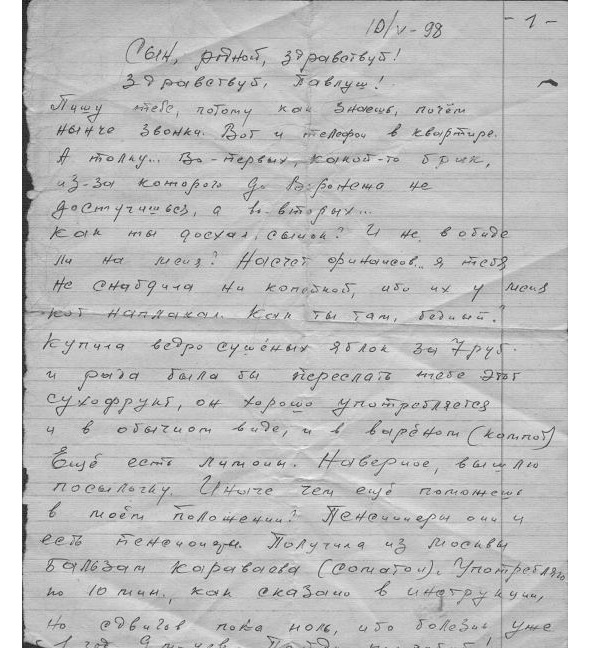 10/V-98
- 1 -
Сын, родной, здравствуй!
Здравствуй, Павлуш!
Пишу тебе, потому как знаешь, почём
нынче звонки. Вот и телефон в квартире.
А толку... Во-первых, какой-то брик,
из-за которого до Воронежа не
достучишься, а во-вторых...
Как ты доехал, сынок? И не в обиде
ли на меня? Насчёт финансов.. я тебя
не снабдила ни копейкой, ибо их у меня
кот наплакал. Как ты там, бедный?
Купила ведро сушёных яблок за 7 руб.
и рада была бы переслать тебе этот
сухофрукт, он хорошо употребляется
и в обычном виде, и в варёном (компот)
Ещё есть лимоны. Наверное, вышлю
посылочку. Иначе чем ещё поможешь
в моём положении? Пенсионеры они и
есть пенсионеры. Получила из Москвы
бальзам Караваева (соматон). Употребляю
по 10 мин., как сказано в инструкции,
но сдвигов пока ноль, ибо болезни уже
1 год